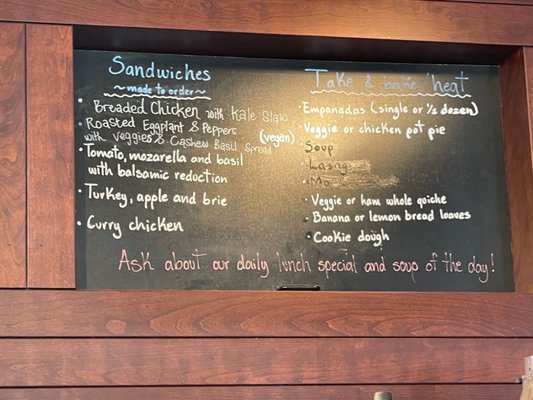 Sandwiches
~ made to order ~
• Breaded Chicken with Kale Slaw
• Roasted Eggplant & Peppers
with Veggies & Cashew Basil Spread (vegan)
• Tomato, mozarella and basil
with balsamic reduction
• Turkey, apple and brie
• Curry chicken
Take & bake/heat
• Empanadas (single or 1/2 dozen)
• Veggie or chicken pot pie
• Soup
• Veggie or ham whole quiche
• Banana or lemon bread loaves
• Cookie dough
Ask about our daily lunch special and soup of the day!